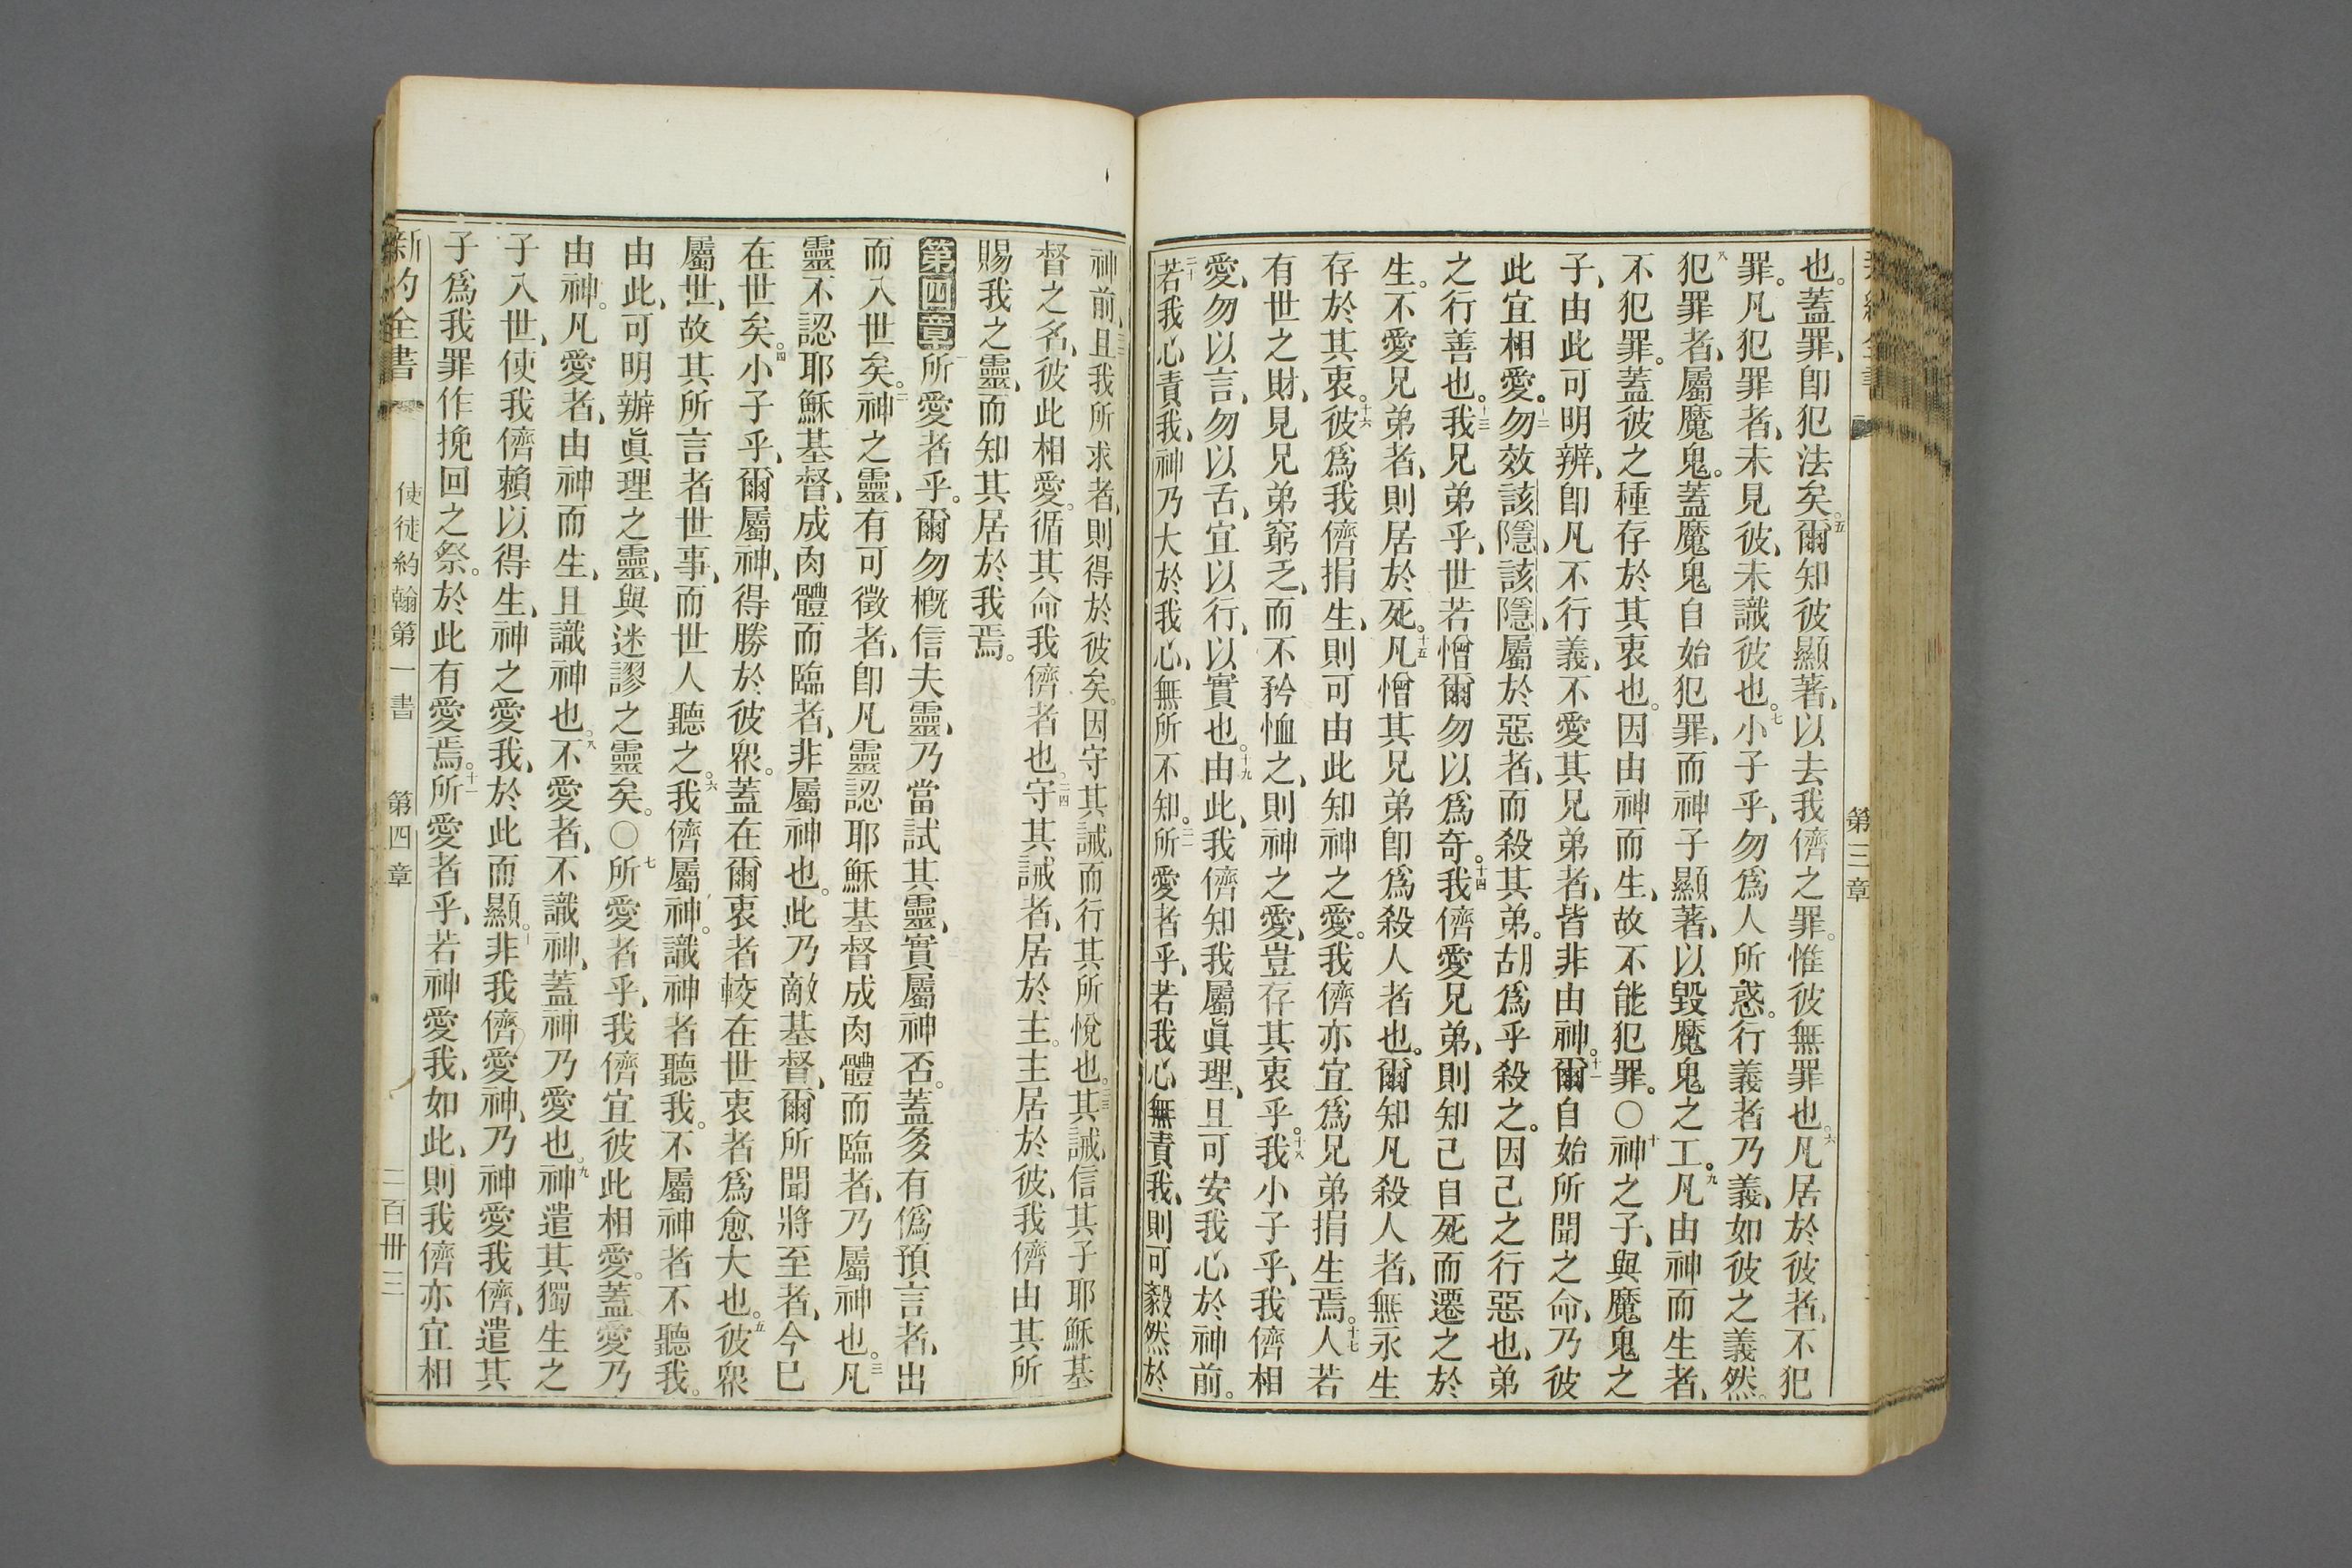 第三章
也。蓋罪、卽犯法矣。五爾知彼顯著、以去我儕之罪。惟彼無罪也。六凡居於彼者、不犯
罪。凡犯罪者、未見彼、未識彼也。七小子乎、勿爲人所惑。行義者乃義、如彼之義然。
八犯罪者、屬魔鬼。蓋魔鬼自始犯罪、而神子顯著、以毀魔鬼之工。九凡由神而生者、
不犯罪。蓋彼之種存於其衷也。因由神而生、故不能犯罪。〇十神之子、與魔鬼之
子、由此可明辨、卽凡不行義、不愛其兄弟者、皆非由神。十一爾自始所聞之命、乃彼
此宜相愛。十二勿效該隱、該隱屬於惡者、而殺其弟。胡爲乎殺之。因己之行惡也、弟
之行善也。十三我兄弟乎、世若憎爾勿以爲奇。十四我儕愛兄弟、則知己自死而遷之於
生。不愛兄弟者、則居於死。十五凡憎其兄弟卽爲殺人者也。爾知凡殺人者、無永生
存於其衷。十六彼爲我儕捐生、則可由此知神之愛。我儕亦宜爲兄弟捐生焉。十七人若
有世之財、見兄弟窮乏、而不矜恤之、則神之愛、豈存其衷乎。十八我小子乎、我儕相
愛、勿以言、勿以舌、宜以行、以實也。十九由此、我儕知我屬眞理、且可安我心於神前。
二十若我心責我、神乃大於我心、無所不知。二一所愛者乎、若我心無責我、則可毅然於
神前、二二且我所求者、則得於彼矣。因守其誡、而行其所悅也。二三其誡、信其子耶穌基
督之名、彼此相愛。循其命我儕者也。二四守其誡者、居於主。主居於彼、我儕由其所
賜我之靈、而知其居於我焉。
第四章一所愛者乎。爾勿槪信夫靈、乃當試其靈、實屬神否。蓋多有僞預言者、出
而入世矣。二神之靈、有可徵者、卽凡靈認耶穌基督成肉體而臨者、乃屬神也。三凡
靈不認耶穌基督、成肉體而臨者、非屬神也。此乃敵基督、爾所聞將至者、今已
在世矣。四小子乎、爾屬神、得勝於彼衆。蓋在爾衷者較在世衷者爲愈大也。五彼衆
屬世、故其所言者世事、而世人聽之。六我儕屬神。識神者聽我。不屬神者不聽我。
由此、可明辦眞理之靈、與迷謬之靈矣。〇七所愛者乎、我儕宜彼此相愛。蓋愛乃
由神。凡愛者、由神而生、且識神也。八不愛者、不識神、蓋神乃愛也。九神遣其獨生之
子入世、使我儕賴以得生、神之愛我、於此而顯。十非我儕愛神、乃神愛我儕、遣其
子爲我罪作挽回之祭。於此有愛焉。十一所愛者乎、若神愛我、如此、則我儕亦宜相
新約全書 使徒約翰第一書 第四章 二百卅三